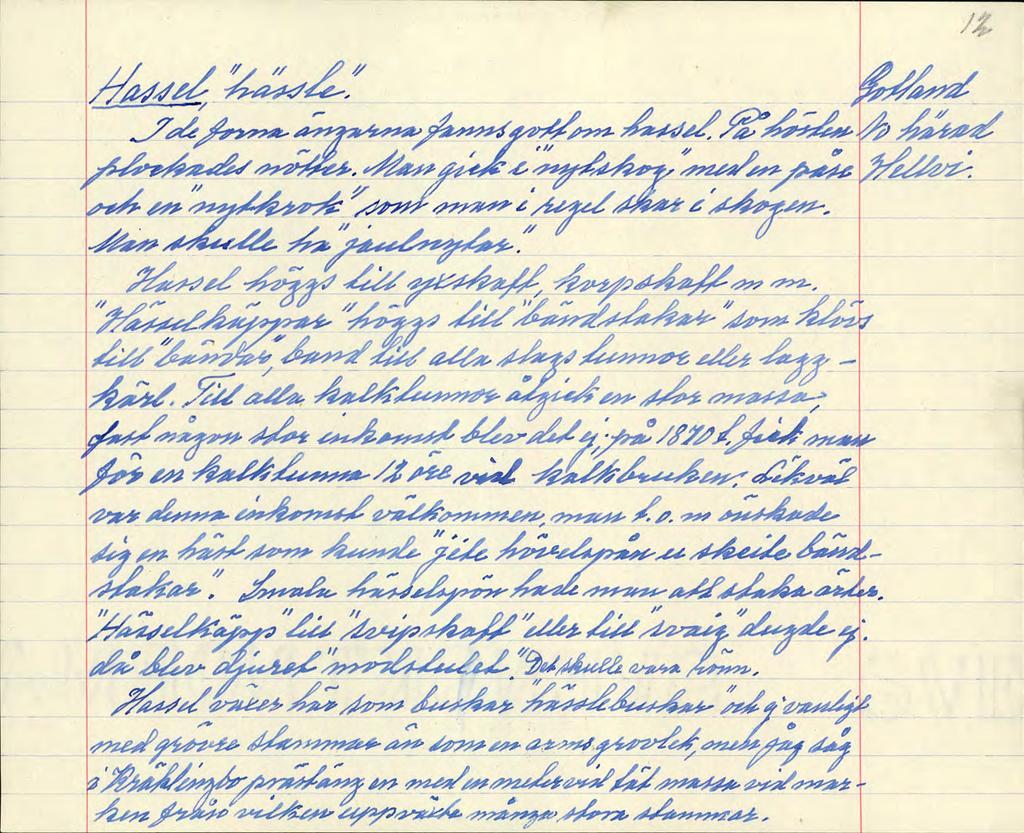 12
Hassel, "hässle".
Gotland
I de forna ängarna fanns gott om hassel. På hösten
No härad
plockades nötter. Man gick i "nytskog" med en påse
Hellvi.
och en "nytkrok" som man i regel skar i skogen.
Man skulle ha "jaulnytar."
Hassel höggs till yxskaft, korpskaft m m.
"Hässelkäppar" höggs till "bändstakar" som klövs
till "bändar", band till alla slags tunnor eller lagg-
kärl. Till alla kalktunnor åtgick en stor massa,
fast någon stor inkomst blev det ej, på 1870 t. fick man
för en kalktunna 12 öre vid kalkbruken. Likväl
var denna inkomst välkommen, man t.o.m önskade
sig en häst som kunde "jete hövelspån u skeite bänd-
stakar". Smala hässelspön hade man att staka ärter.
"Hässelkäpp" till "svipskaft" eller till "svaig" dugde ej.
då blev djuret "modstulet." Det skulle vara rönn.
Hassel växer här som buskar "hässlebuskar" och ej vanligt
med grövre stammar än som en arms grovlek, men jag såg
i Kräklingbo prästäng en med en meter vid tät massa vid mar-
ken från vilken uppväxte många stora stammar.